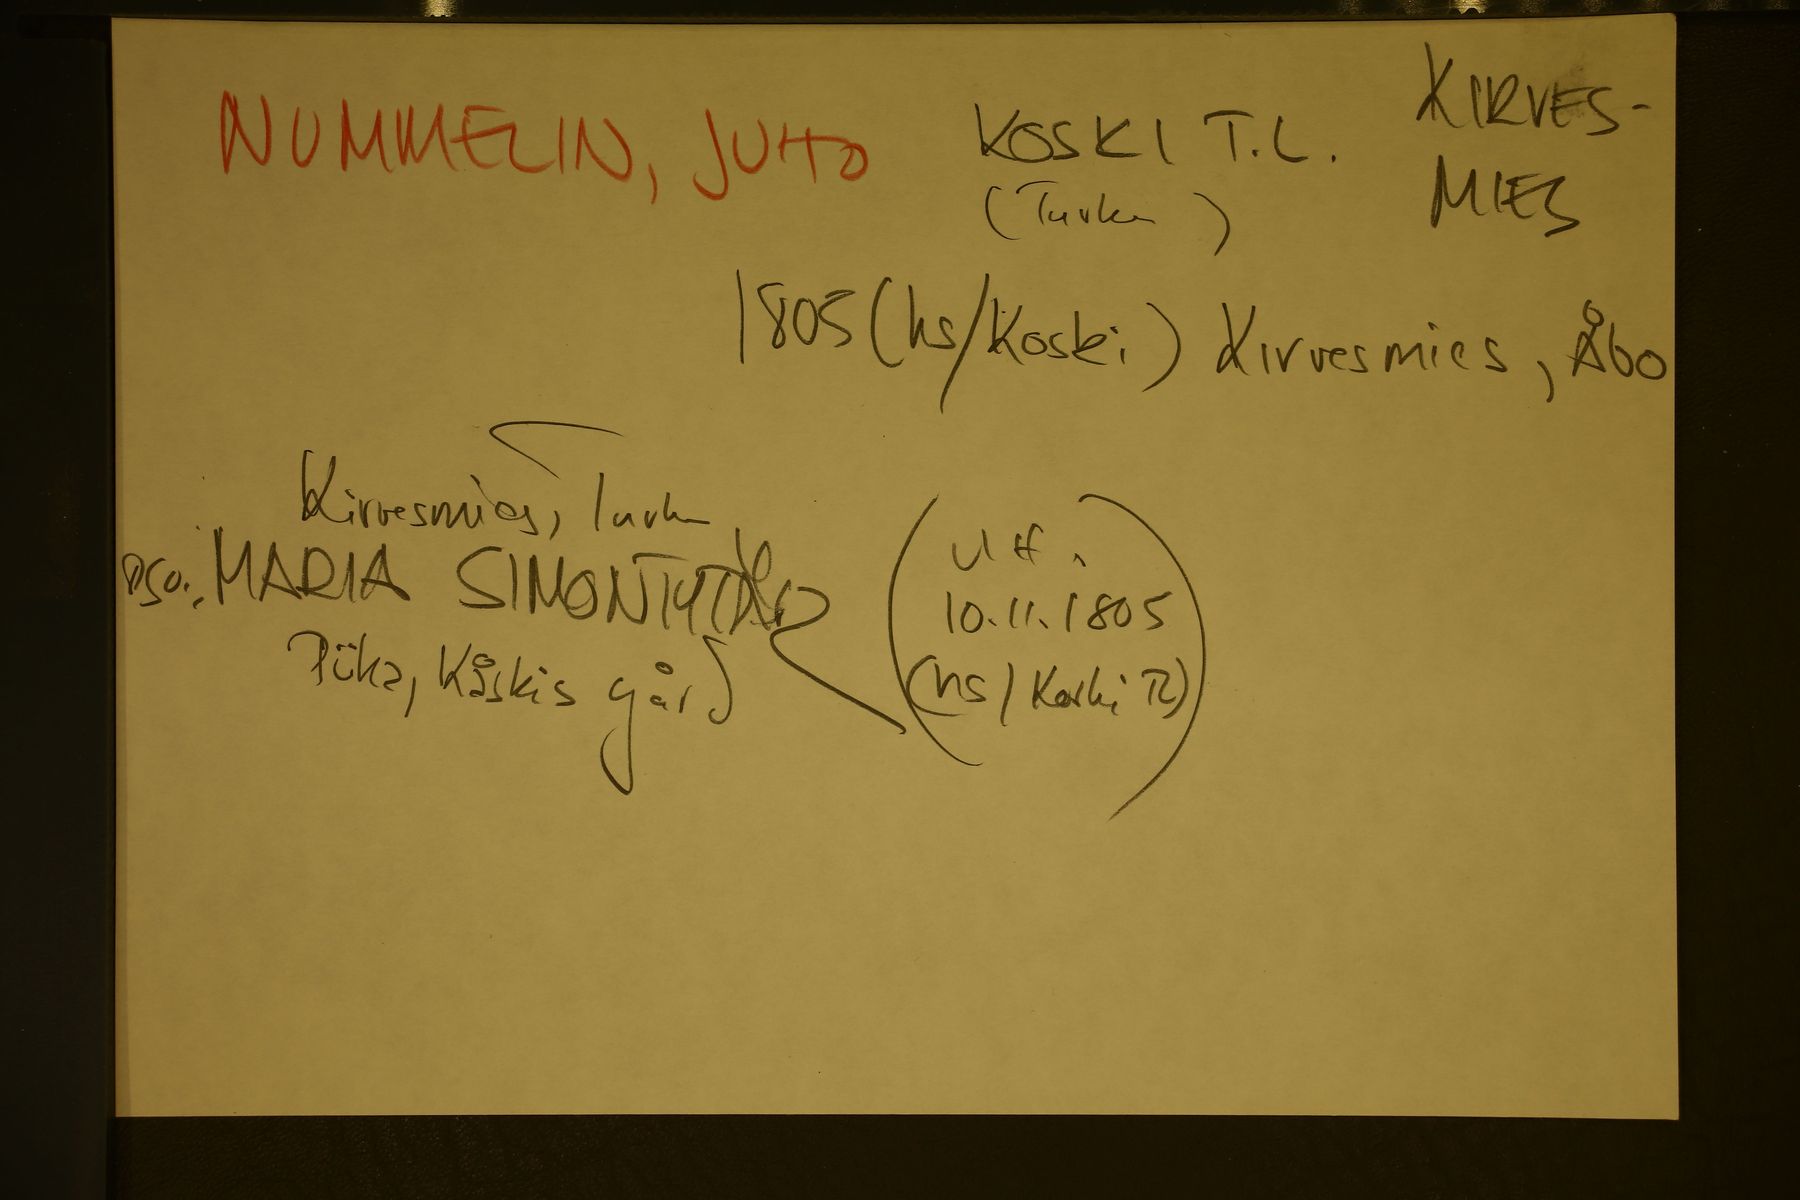 NUMMELIN, JUHO KOSKI T.L. KIRVES-
MIES
(Turku)
1805 (hs/Koski) Kirvesmies, Åbo
Kirvesmies, Turku
pso., MARIA SIMONTYTÄR
Piika, Kåskis gård
Uf.
10.11.1805
(hs/Koski Tl)